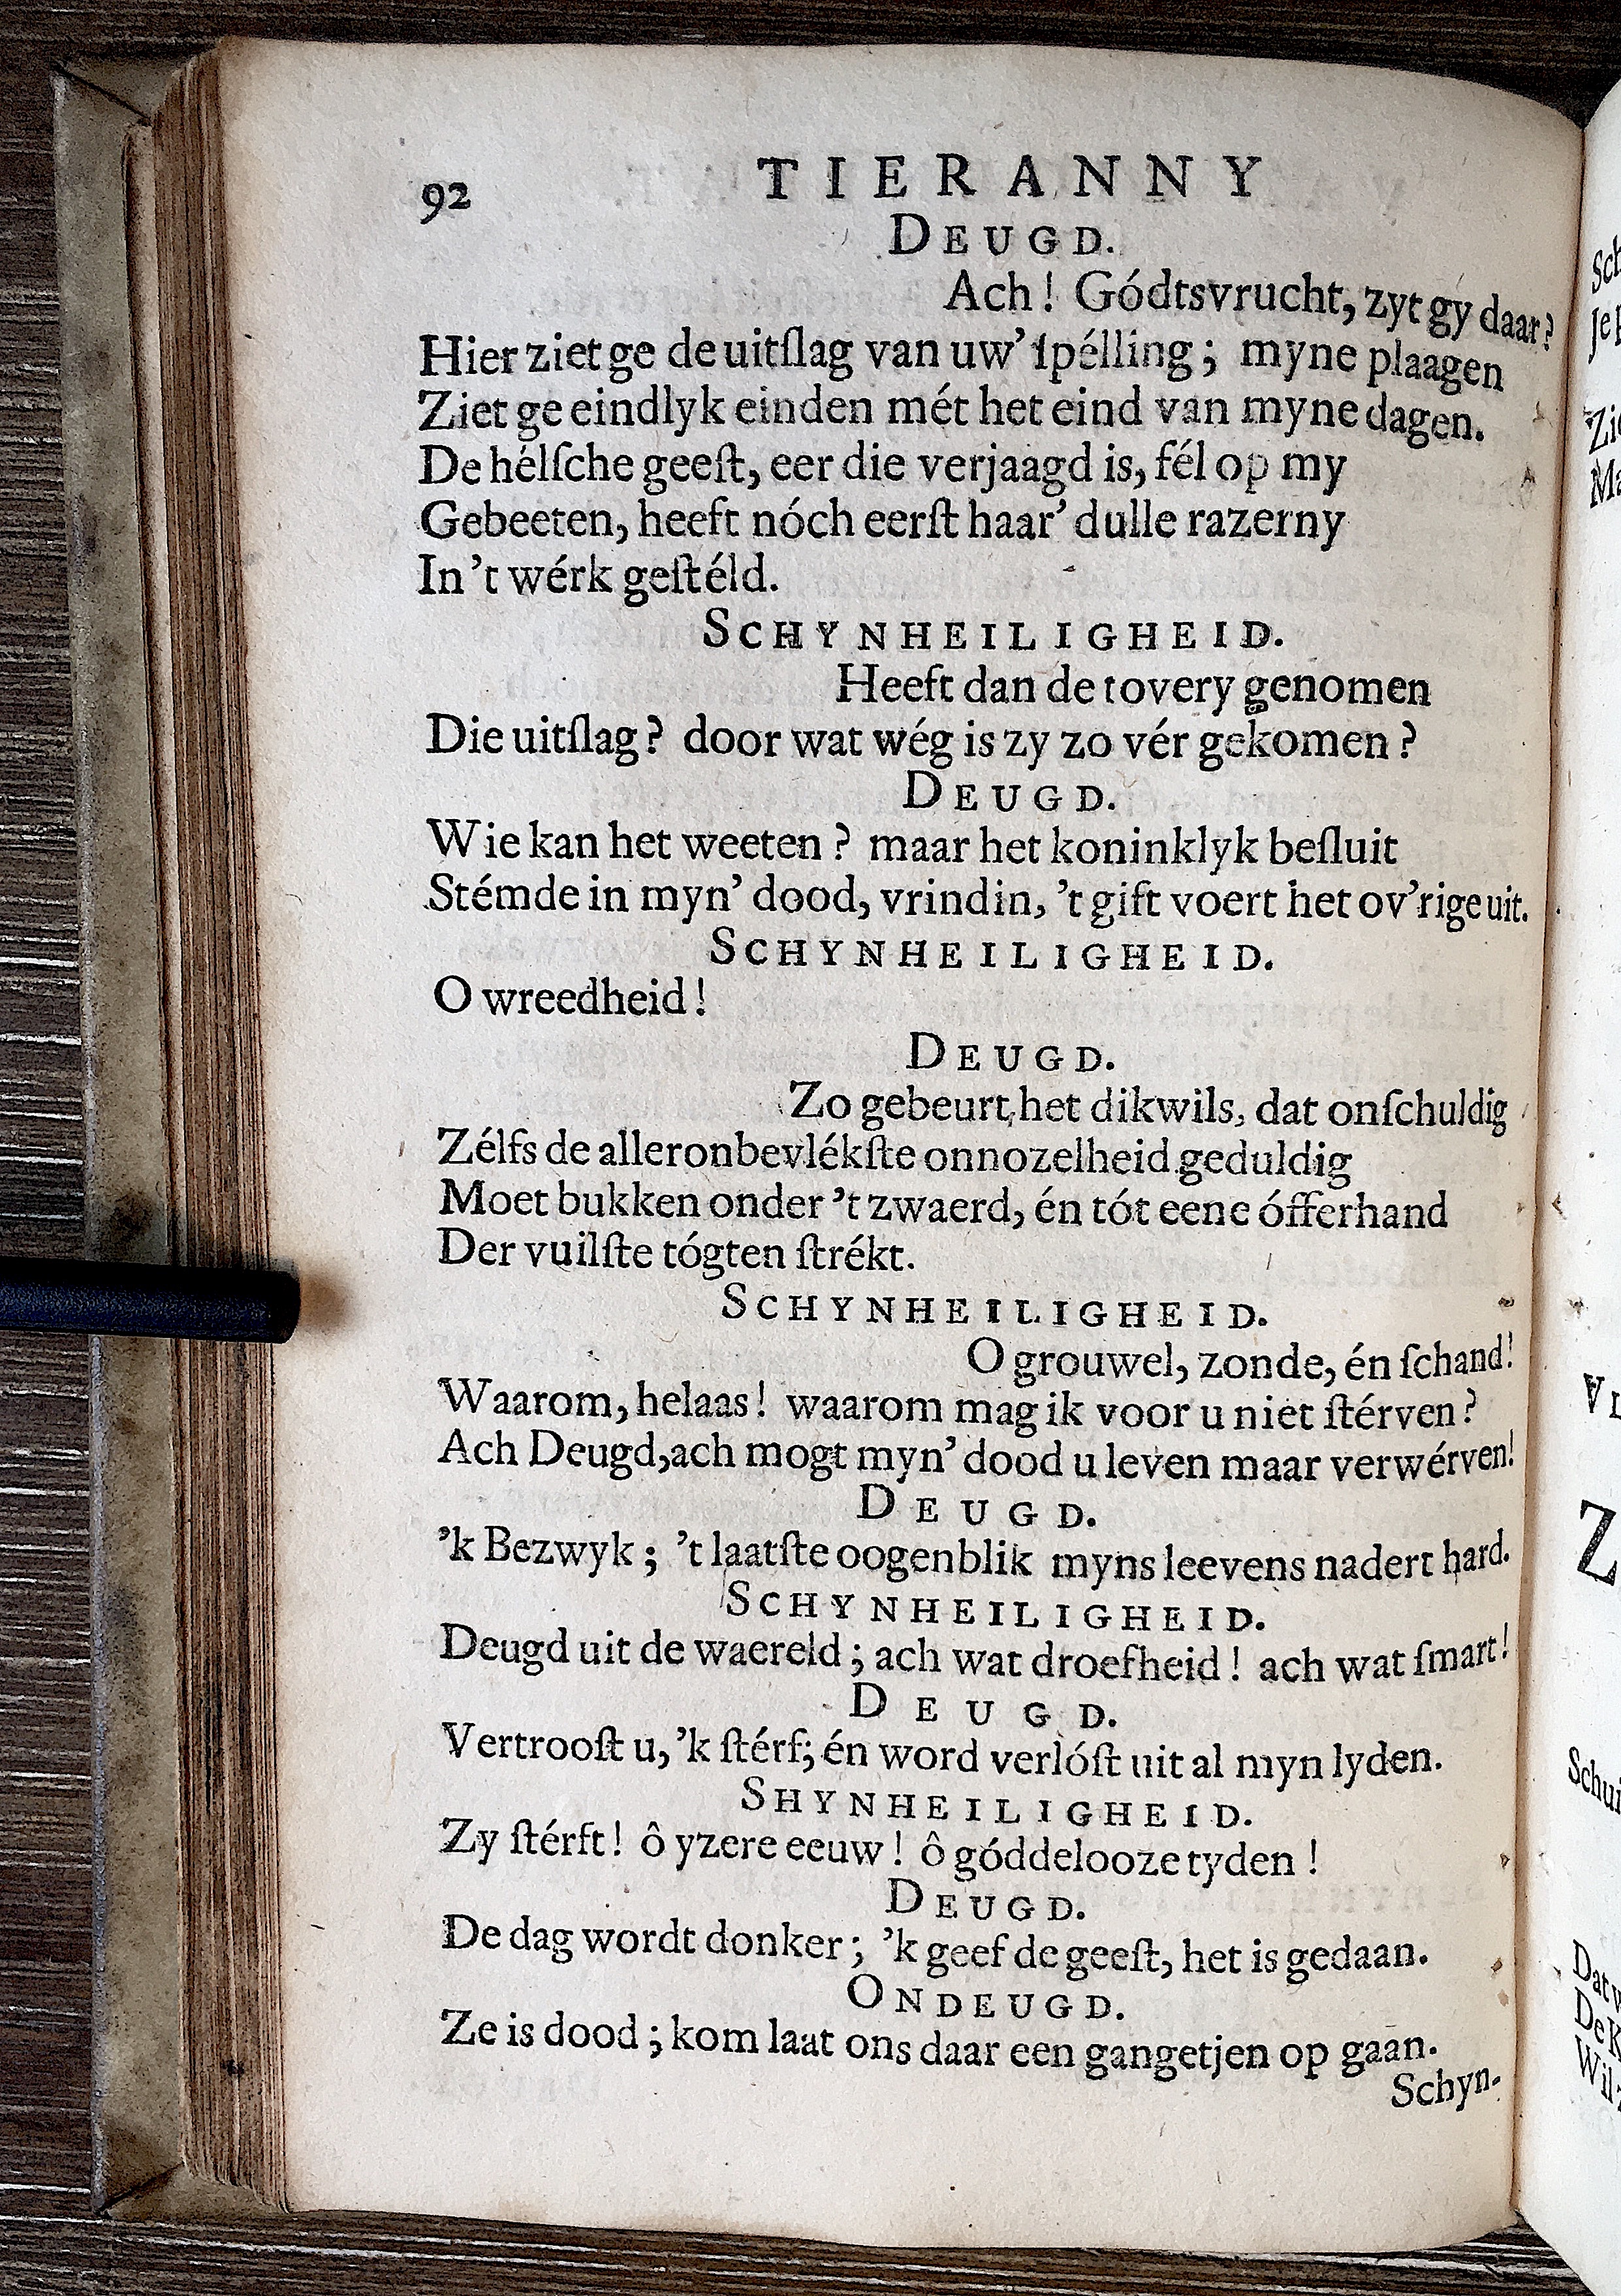 92 TIERANNY
DEUGD.
Ach! Gódtsvrucht, zyt gy daar?
Hier ziet ge de uitſlag van uw' ſpélling; myne plaagen
Ziet ge eindlyk einden mét het eind van myne dagen.
De hélſche geeſt, eer die verjaagd is, fél op my
Gebeeten, heeft nóch eerſt haar' dulle razerny
In 't wérk geſtéld.
SCHYNHEILIGHEID.
Heeft dan de tovery genomen
Die uitſlag? door wat wég is zy zo vér gekomen?
DEUGD.
Wie kan het weeten? maar het koninklyk beſluit
Stémde in myn' dood, vrindin, 't gift voert het ov'rige uit.
SCHYNHEILIGHEID.
O wreedheid!
DEUGD.
Zo gebeurt het dikwils, dat onſchuldig
Zélfs de alleronbevlékſte onnozelheid geduldig
Moet bukken onder 't zwaerd, én tót eene ófferhand
Der vuilſte tógten ſtrékt.
SCHYNHEILIGHEID.
O grouwel, zonde, én ſchand!
Waarom, helaas! waarom mag ik voor u niet ſtérven?
Ach Deugd, ach mogt myn' dood u leven maar verwérven!
DEUGD.
'k Bezwyk; 't laatſte oogenblik myns leevens nadert hard.
SCHYNHEILIGHEID.
Deugd uit de waereld; ach wat droefheid! ach wat ſmart!
DEUGD.
Vertrooſt u, 'k ſtérf; én word verlóſt uit al myn lyden.
SHYNHEILIGHEID.
Zy ſtérft! ô yzere eeuw! ô góddelooze tyden!
DEUGD.
De dag wordt donker; 'k geef de geeſt, het is gedaan.
ONDEUGD.
Ze is dood; kom laat ons daar een gangetjen op gaan.
Schyn-